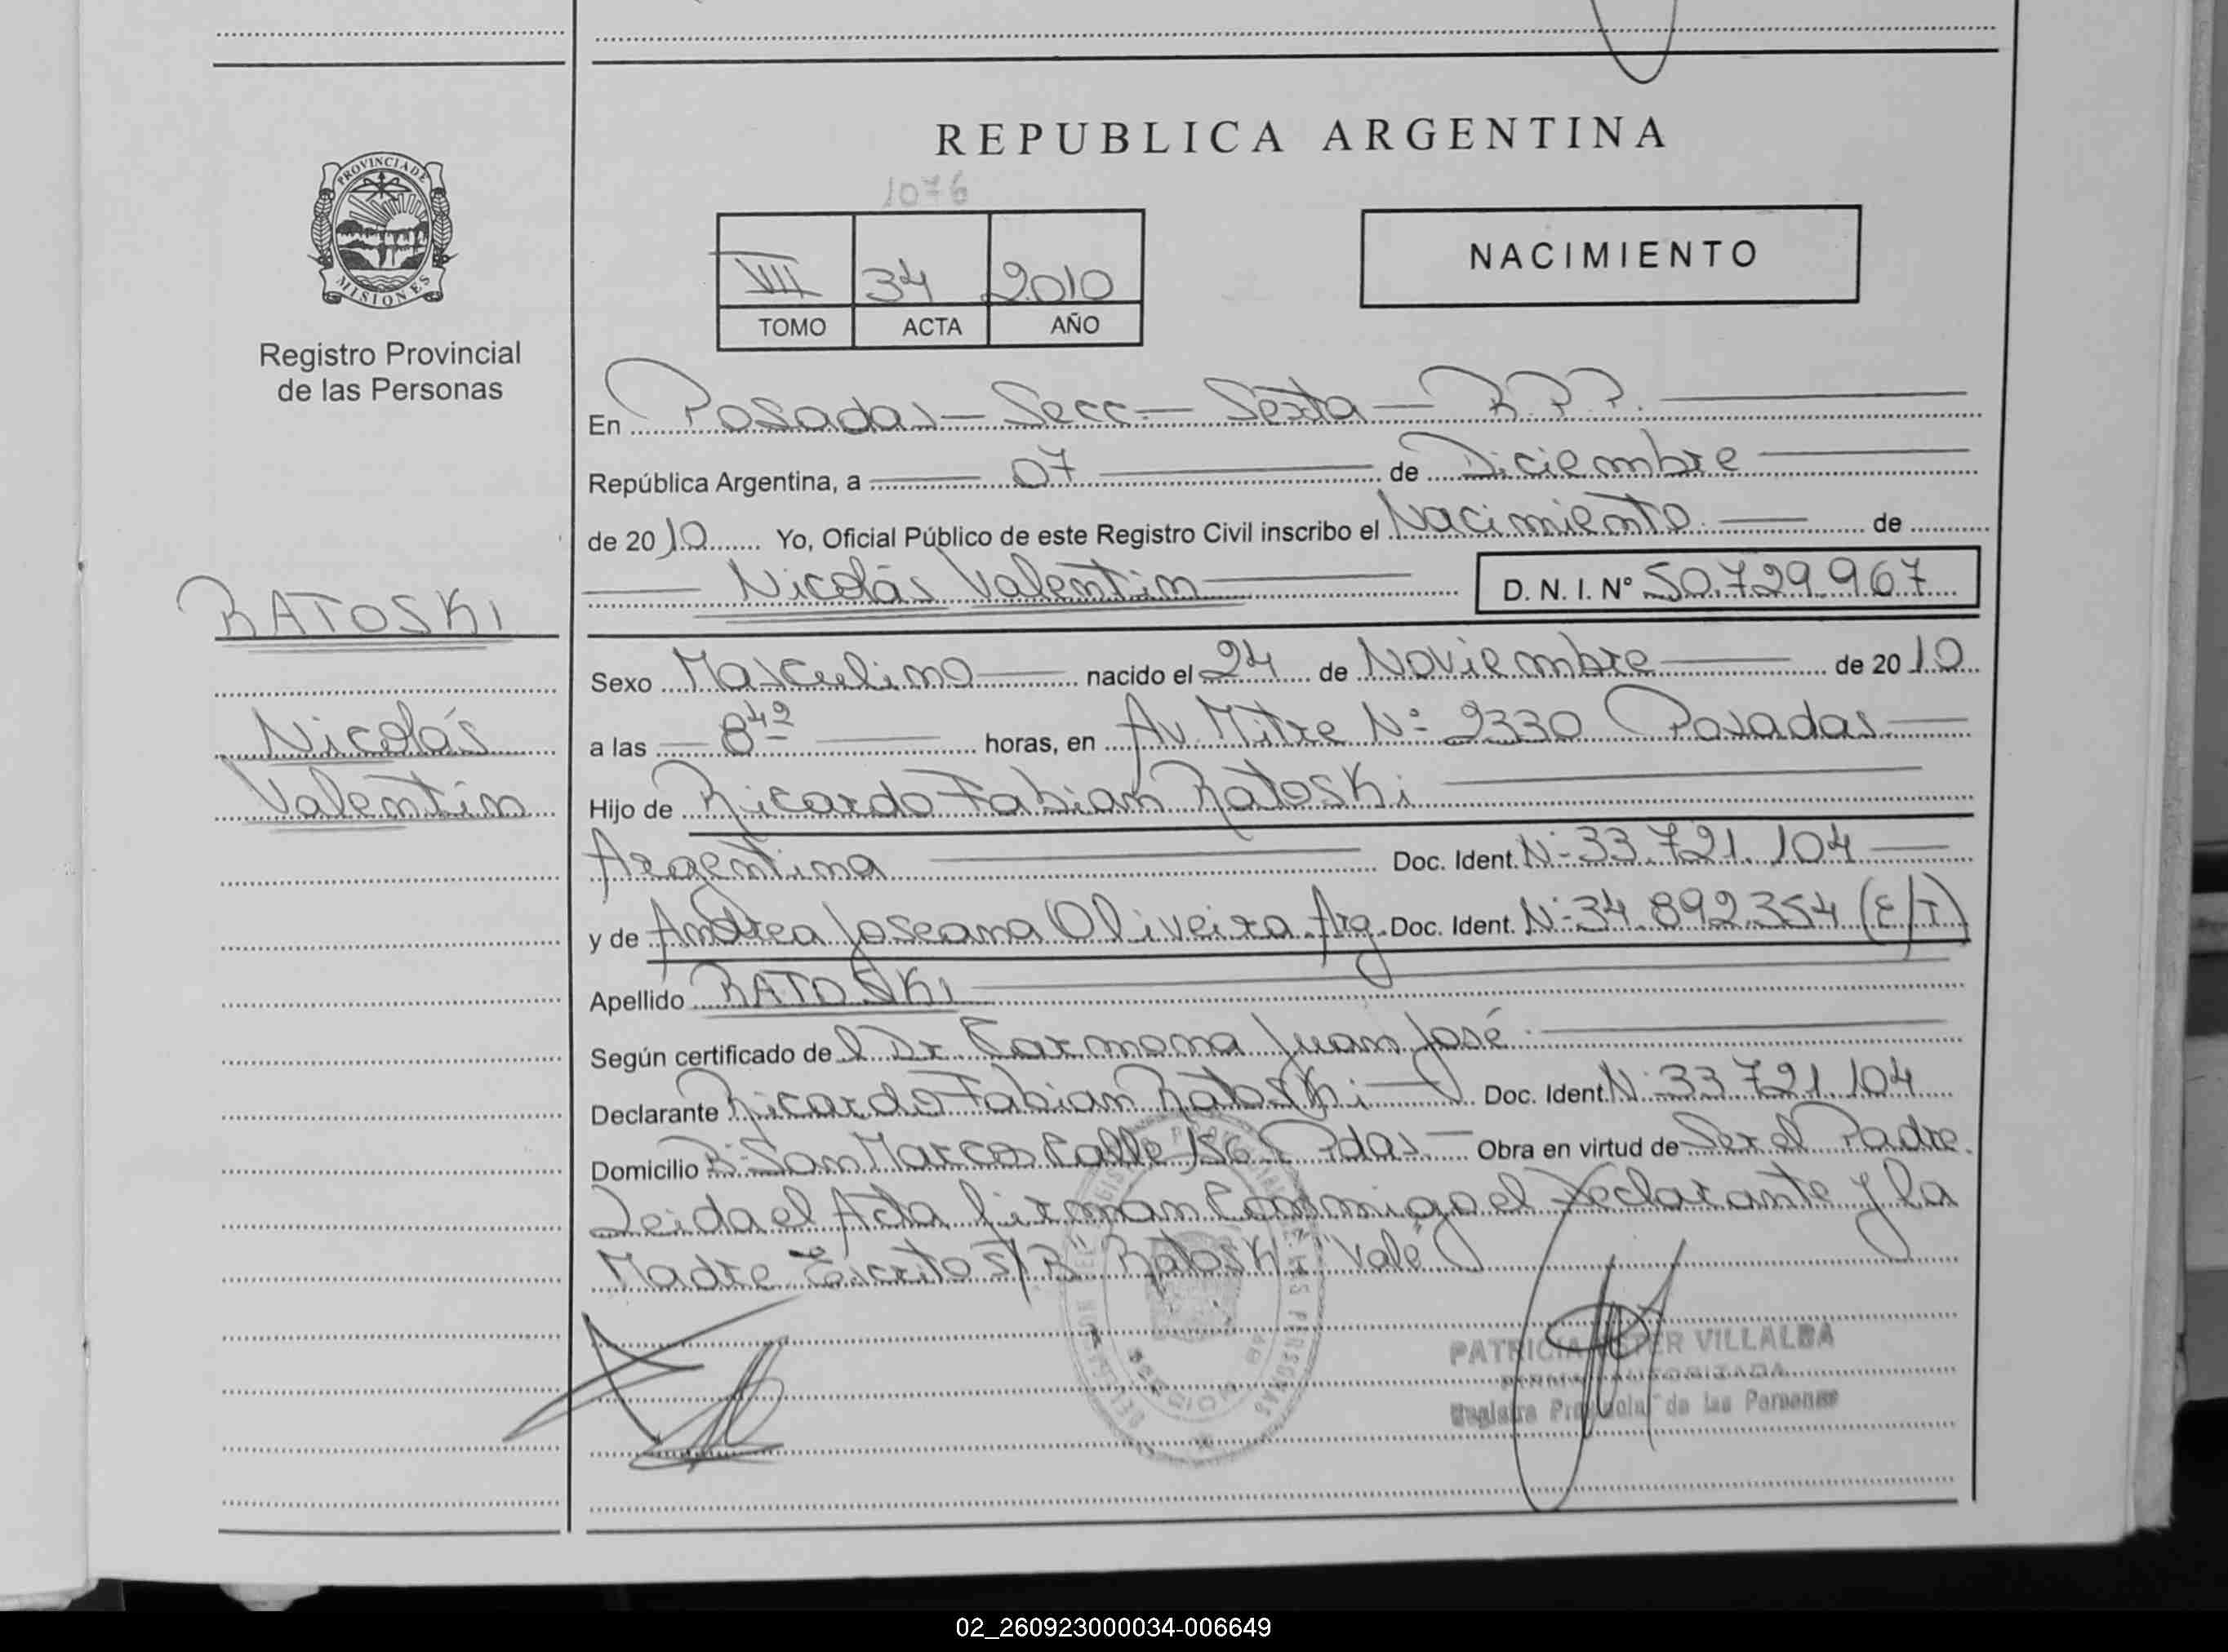 REPUBLICA ARGENTINA
1076
PROVINCIA DE
MISIONES
Registro Provincial
de las Personas
VII 34 2010
TOMO ACTA AÑO
NACIMIENTO
En Posadas - Secc - Sexta - R.P.P.
República Argentina, a 07 de Diciembre
de 2010 Yo, Oficial Público de este Registro Civil inscribo el Nacimiento de
Nicolás Valentin D. N. I. Nº 50.729.967
RATOSKI
Nicolás
Valentín
Sexo Masculino nacido el 24 de Noviembre de 2010
a las 8 42 horas, en Av Mitre Nº 2330 Posadas
Hijo de Ricardo Fabian Ratoski
Argentina Doc. Ident. Nº 33.721.104
y de Andrea Joseana Oliveira Arg. Doc. Ident. Nº 34.892.354 (E/T)
Apellido RATOSKI
Según certificado del Dr Carmona Juan José
Declarante Ricardo Fabian Ratoski Doc. Ident. Nº 33.721.104
Domicilio Bº San Marcos Calle 156 Pdas Obra en virtud de Ser el Padre.
Leida el Acta firman Conmigo el Declarante y la
Madre Escrito S/R "Ratoski" "Vale"
PATRICIA VILLALBA
FIRMA AUTORIZADA
Registro Provincial de las Personas
02_260923000034-006649